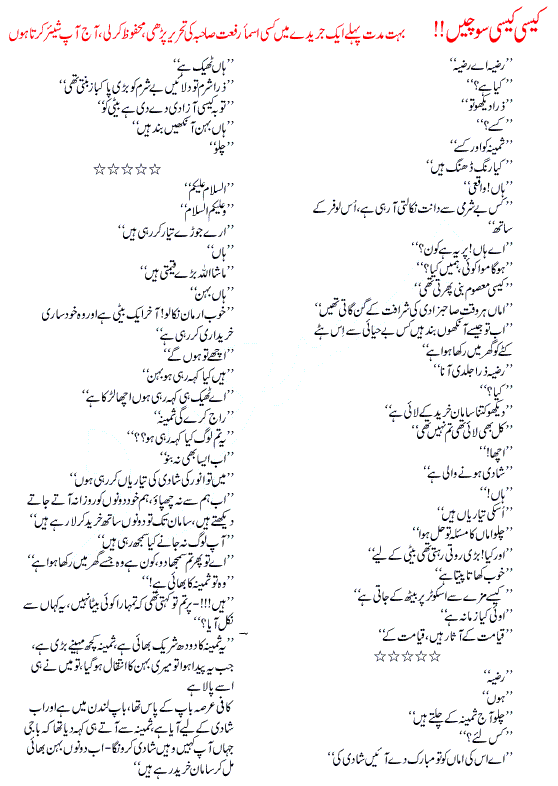 کیسی کیسی سوچیں !!
بہت مدت پہلے ایک جریدے میں کسی اسمأ رفعت صاحبہ کی تحریر پڑھی، محفوظ کر لی، آج آپ شیئر کرتا ہوں
’’رضیہ اے رضیہ‘‘
’’کیا ہے؟‘‘
’’ذرا دیکھو تو‘‘
’’کسے؟‘‘
’’ثمینہ کو اور کسے‘‘
’’کیا رنگ ڈھنگ ہیں‘‘
’’ہاں! واقعی‘‘
’’کس بے شرمی سے دانت نکالتی آ رہی ہے، اُس لوفر کے
ساتھ‘‘
’’اے ہاں! پر یہ ہے کون؟‘‘
’’ہو گا موا کوئی، ہمیں کیا؟‘‘
’’کیسی معصوم بنی پھرتی تھی‘‘
’’اماں ہر وقت صاحبزادی کی شرافت کے گن گاتی تھیں‘‘
’’اب تو جیسے آنکھوں بند ہیں کس بے حیائی سے اِس ہٹے
کٹے کو گھر میں رکھا ہوا ہے‘‘
’’رضیہ ذرا جلدی آنا‘‘
’’کیا؟‘‘
’’دیکھو کتنا سامان خرید کے لائی ہے‘‘
’’کل بھی لائی تھی تم نہیں تھی‘‘
’’اچھا!‘‘
’’شادی ہونے والی ہے‘‘
’’ہاں!‘‘
’’اُسکی تیاریاں ہیں‘‘
’’چلو اماں کا مسئلہ تو حل ہوا‘‘
’’اور کیا! بڑی روتی رہتی تھی بیٹی کے لیے‘‘
’’خوب کھاتا پیتا ہے‘‘
’’کیسے مزے سے اسکوٹر پر بیٹھ کے جاتی ہے‘‘
’’اوئی کیا زمانہ ہے‘‘
’’قیامت کے آثار ہیں، قیامت کے‘‘
☆☆☆☆☆
’’رضیہ‘‘
’’ہوں‘‘
’’چلو آج ثمینہ کے چلتے ہیں‘‘
’’کس لئے؟‘‘
’’اے اس کی اماں کو تو مبارک دے آئیں شادی کی‘‘
’’ہاں ٹھیک ہے‘‘
’’ذرا شرم تو دلائیں بے شرم کو بڑی پاکباز بنتی تھی‘‘
’’توبہ کیسی آزادی دے دی ہے بیٹی کو‘‘
’’ہاں بہن آنکھیں بند ہیں‘‘
’’چلو‘‘
☆☆☆☆☆
’’السلام علیکم‘‘
’’وعلیکم السلام‘‘
’’ارے جوڑے تیار کر رہی ہیں‘‘
’’ہاں‘‘
’’ماشااللہ بڑے قیمتی ہیں‘‘
’’ہاں بہن‘‘
’’خوب ارمان نکالو! آخر ایک بیٹی ہے اور وہ خود ساری
خریداری کر رہی ہے‘‘
’’اچھے تو ہوں گے‘‘
’’ہیں کیا کہہ رہی ہو بہن‘‘
’’اے ٹھیک ہی کہہ رہی ہوں اچھا لڑکا ہے‘‘
’’راج کرے گی ثمینہ‘‘
’’یہ تم لوگ کیا کہہ رہی ہو؟؟‘‘
’’اب ایسا بھی نہ بنو‘‘
’’میں تو انور کی شادی کی تیاریاں کر رہی ہوں‘‘
’’اب ہم سے نہ چھپاؤ، ہم خود دونوں کو روزانہ آتے جاتے
دیکھتے ہیں، سامان تک تو دونوں ساتھ خرید کر لا رہے ہیں‘‘
’’آپ لوگ نہ جانے کیا سمجھ رہی ہیں‘‘
’’اے تو پھر تم سمجھا دو، کون ہے وہ جسے گھر میں رکھا ہوا ہے‘‘
’’وہ تو ثمینہ کا بھائی ہے!‘‘
’’ہیں!!!- پر تم تو کہتی تھی کہ تمہارا کوئی بیٹا نہیں، یہ کہاں سے
نکل آیا؟‘‘
’’یہ ثمینہ کا دودھ شریک بھائی ہے، ثمینہ کچھ مہینے بڑی ہے،
جب یہ پیدا ہوا تو میری بہن کا انتقال ہو گیا، تو میں نے ہی
اسے پالا ہے
کافی عرصہ باپ کے پاس تھا، باپ لندن میں ہے اور اب
شادی کے لیے آیا ہے، ثمینہ سے آتے ہی کہہ دیا تھا کہ باجی
جہاں آپ کہیں وہیں شادی کرونگا- اب دونوں بہن بھائی
مل کر سامان خرید رہے ہیں‘‘